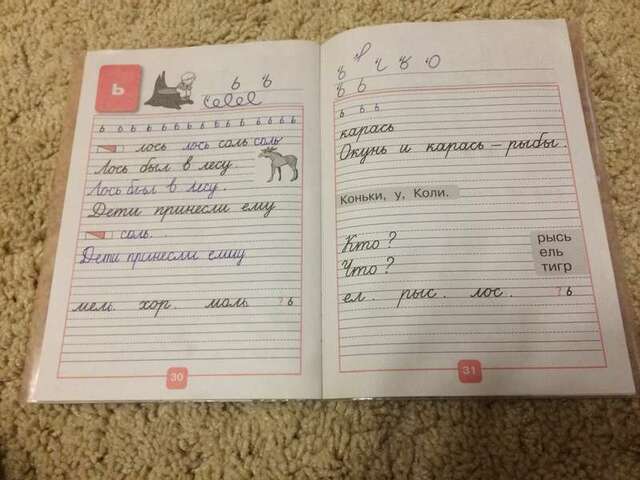 ь
ь ь
ь ь ь ь ь ь ь ь ь ь ь ь ь
лось лось соль соль
Лось был в лесу.
Лось был в лесу.
Дети принесли ему
соль.
Дети принесли ему
мель хор.. моль ? ь
30
ь ь ь
карась
Окунь и карась – рыбы.
Коньки, у, Коли.
Кто?
Что?
рысь
ель
тигр
ел.. рыс.. лос.. ? ь
31